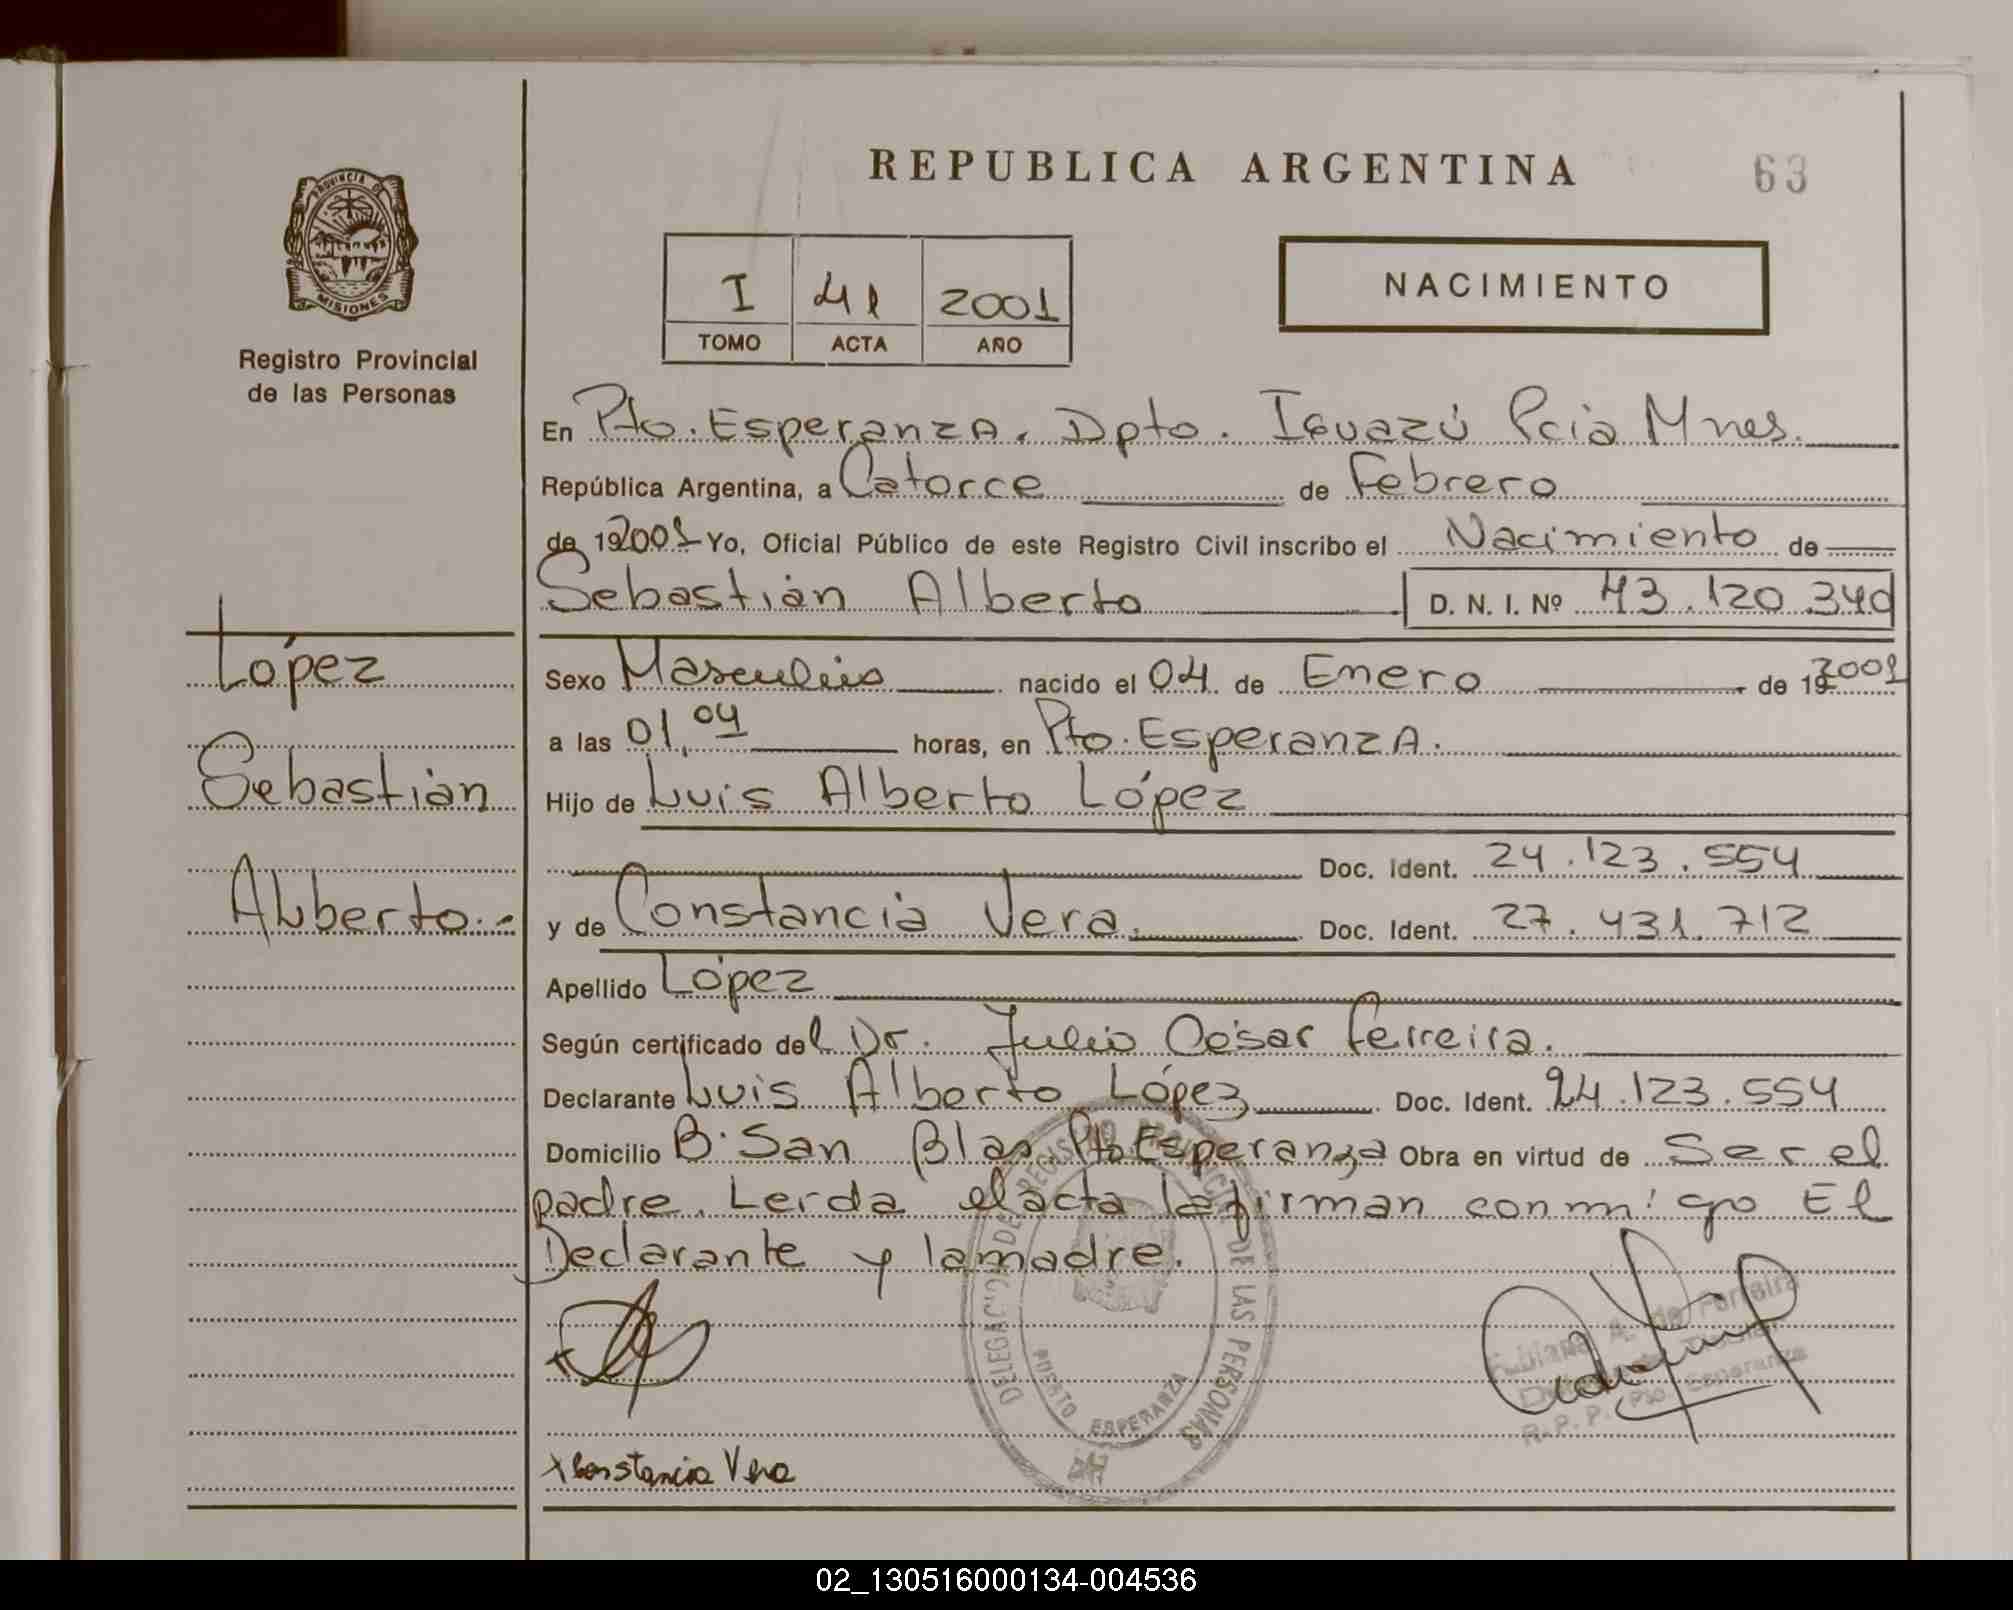 REPUBLICA ARGENTINA 63
PROVINCIA DE
MISIONES
Registro Provincial
de las Personas
I 41 2001
TOMO ACTA AÑO
NACIMIENTO
En Pto. Esperanza. Dpto. Iguazú Pcia Mnes.
República Argentina, a Catorce de Febrero
de 192001 Yo, Oficial Público de este Registro Civil inscribo el Nacimiento de
Sebastián Alberto D. N. I. Nº 43.120.340
López
Sebastián
Alberto.-
Sexo Masculino nacido el 04 de Enero de 192001
a las 01,04 horas, en Pto. Esperanza.
Hijo de Luis Alberto López
Doc. Ident. 24.123.554
y de Constancia Vera. Doc. Ident. 27.431.712
Apellido López
Según certificado del Dr. Julio César Ferreira.
Declarante Luis Alberto López Doc. Ident. 24.123.554
Domicilio B. San Blas. Pto Esperanza Obra en virtud de Ser el
padre. Lerda el acta la firman conmigo El
Declarante y la madre.
DELEGACION DE REGISTRO PROVINCIAL DE LAS PERSONAS
PUERTO ESPERANZA
A. de Ferreira
R.P.P. Pto. Esperanza
x Constancia Vera
02_130516000134-004536